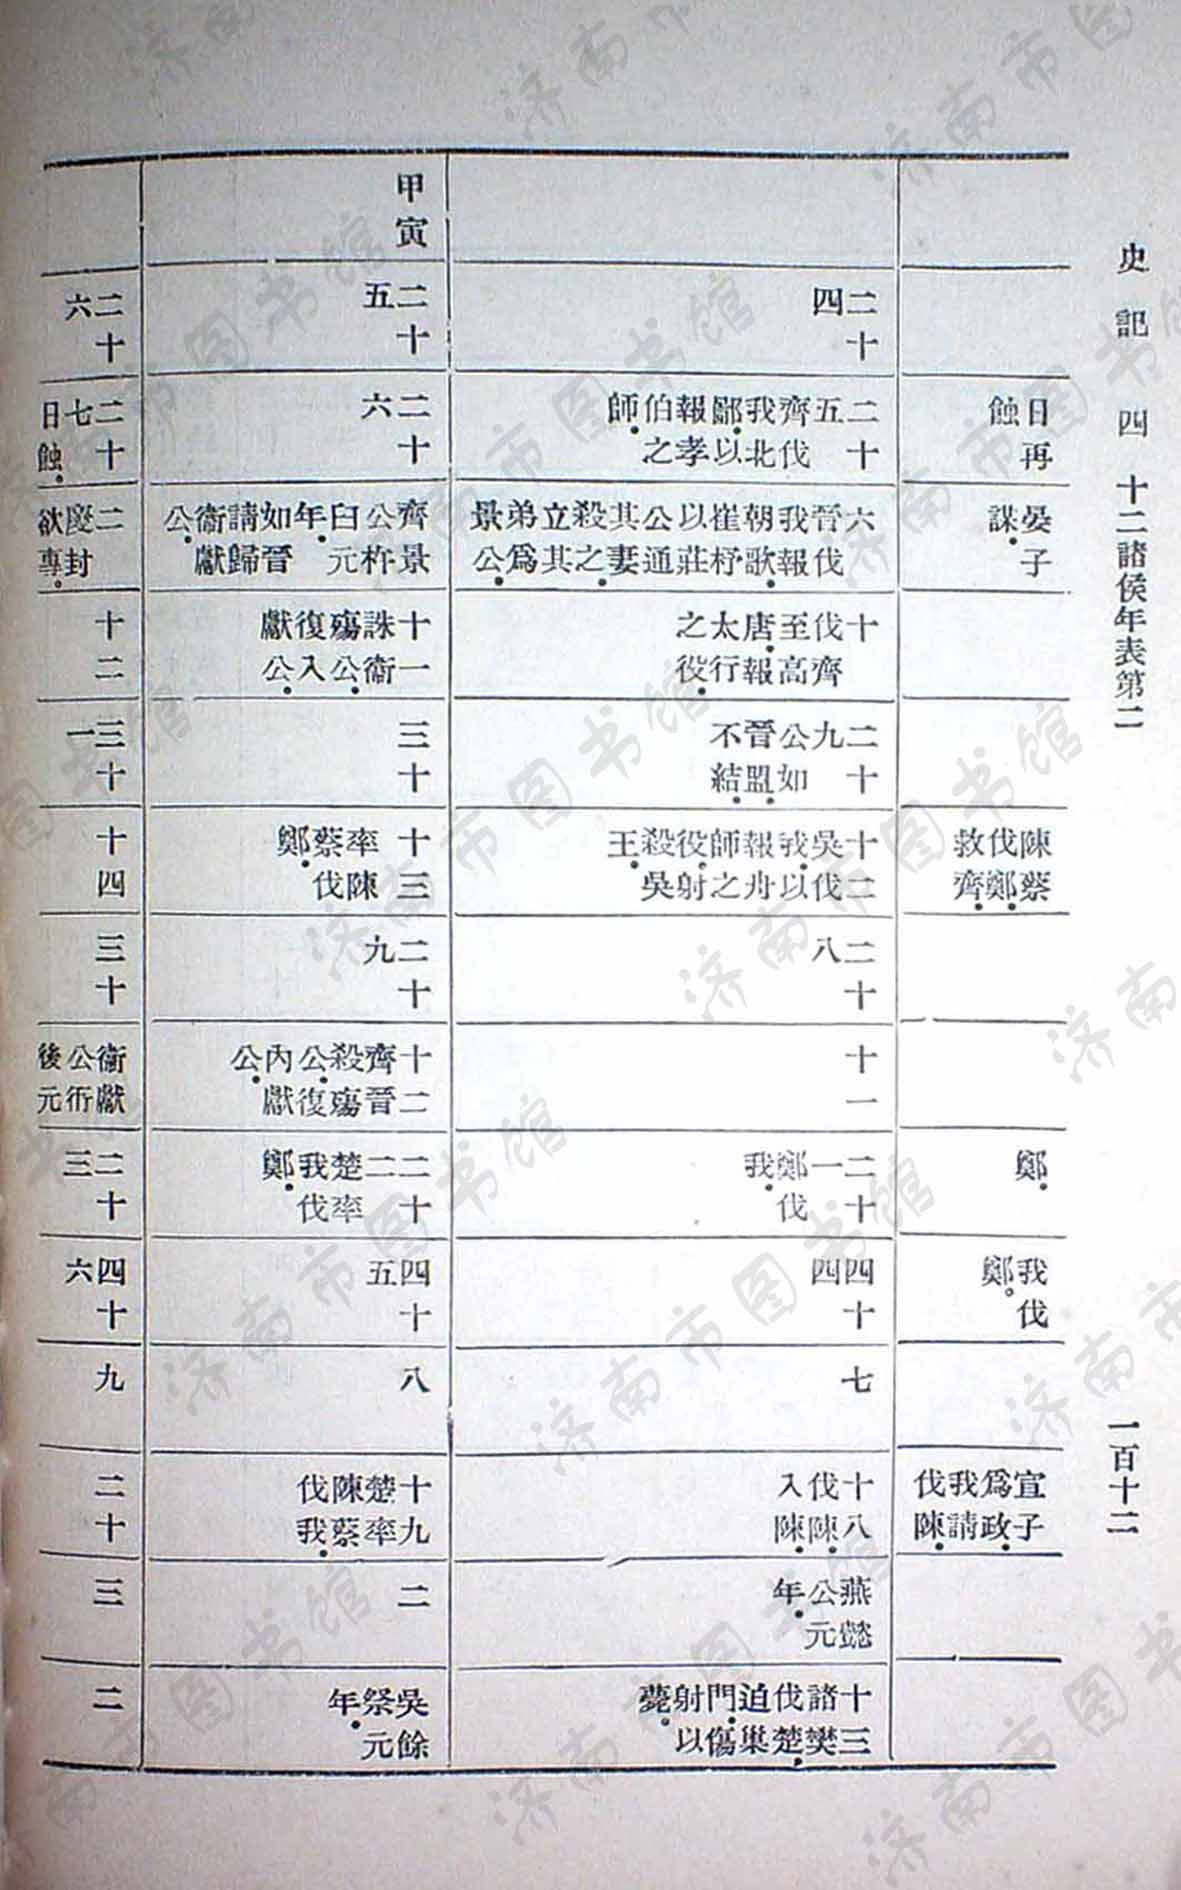 史記 四 十二諸侯年表第二 一百十二
日再蝕
晏子謀。
陳蔡伐鄭。救齊。
鄭。
我伐鄭。
宣子爲政。我請伐陳。
二十四
二十五齊伐我北鄙。以報孝伯之師。
六晉伐我報朝歌。崔杼以莊公通其妻。殺之。立其弟爲景公。
十伐齊至高唐。報太行之役。
二十九公如晉盟。不結。
十二吳伐我。以報舟師之役。射殺吳王。
二十八
十一
二十一鄭伐我。
四十四
七
十八伐陳。入陳。
燕懿公元年。
十三諸樊伐楚。迫巢門。傷射以薨。
甲寅
二十五
二十六
齊景公杵臼元年。如晉請歸衞獻公。
十一誅衞殤公。復入獻公。
三十
十三率陳蔡伐鄭。
二十九
十二齊晉殺殤公。復內獻公。
二十二楚率我伐鄭。
四十五
八
十九楚率陳蔡伐我。
二
吳餘祭元年。
二十六
二十七日蝕。
二慶封欲專。
十二
三十一
十四
三十
衞獻公衎後元
二十三
四十六
九
二十
三
二
济南市图书馆